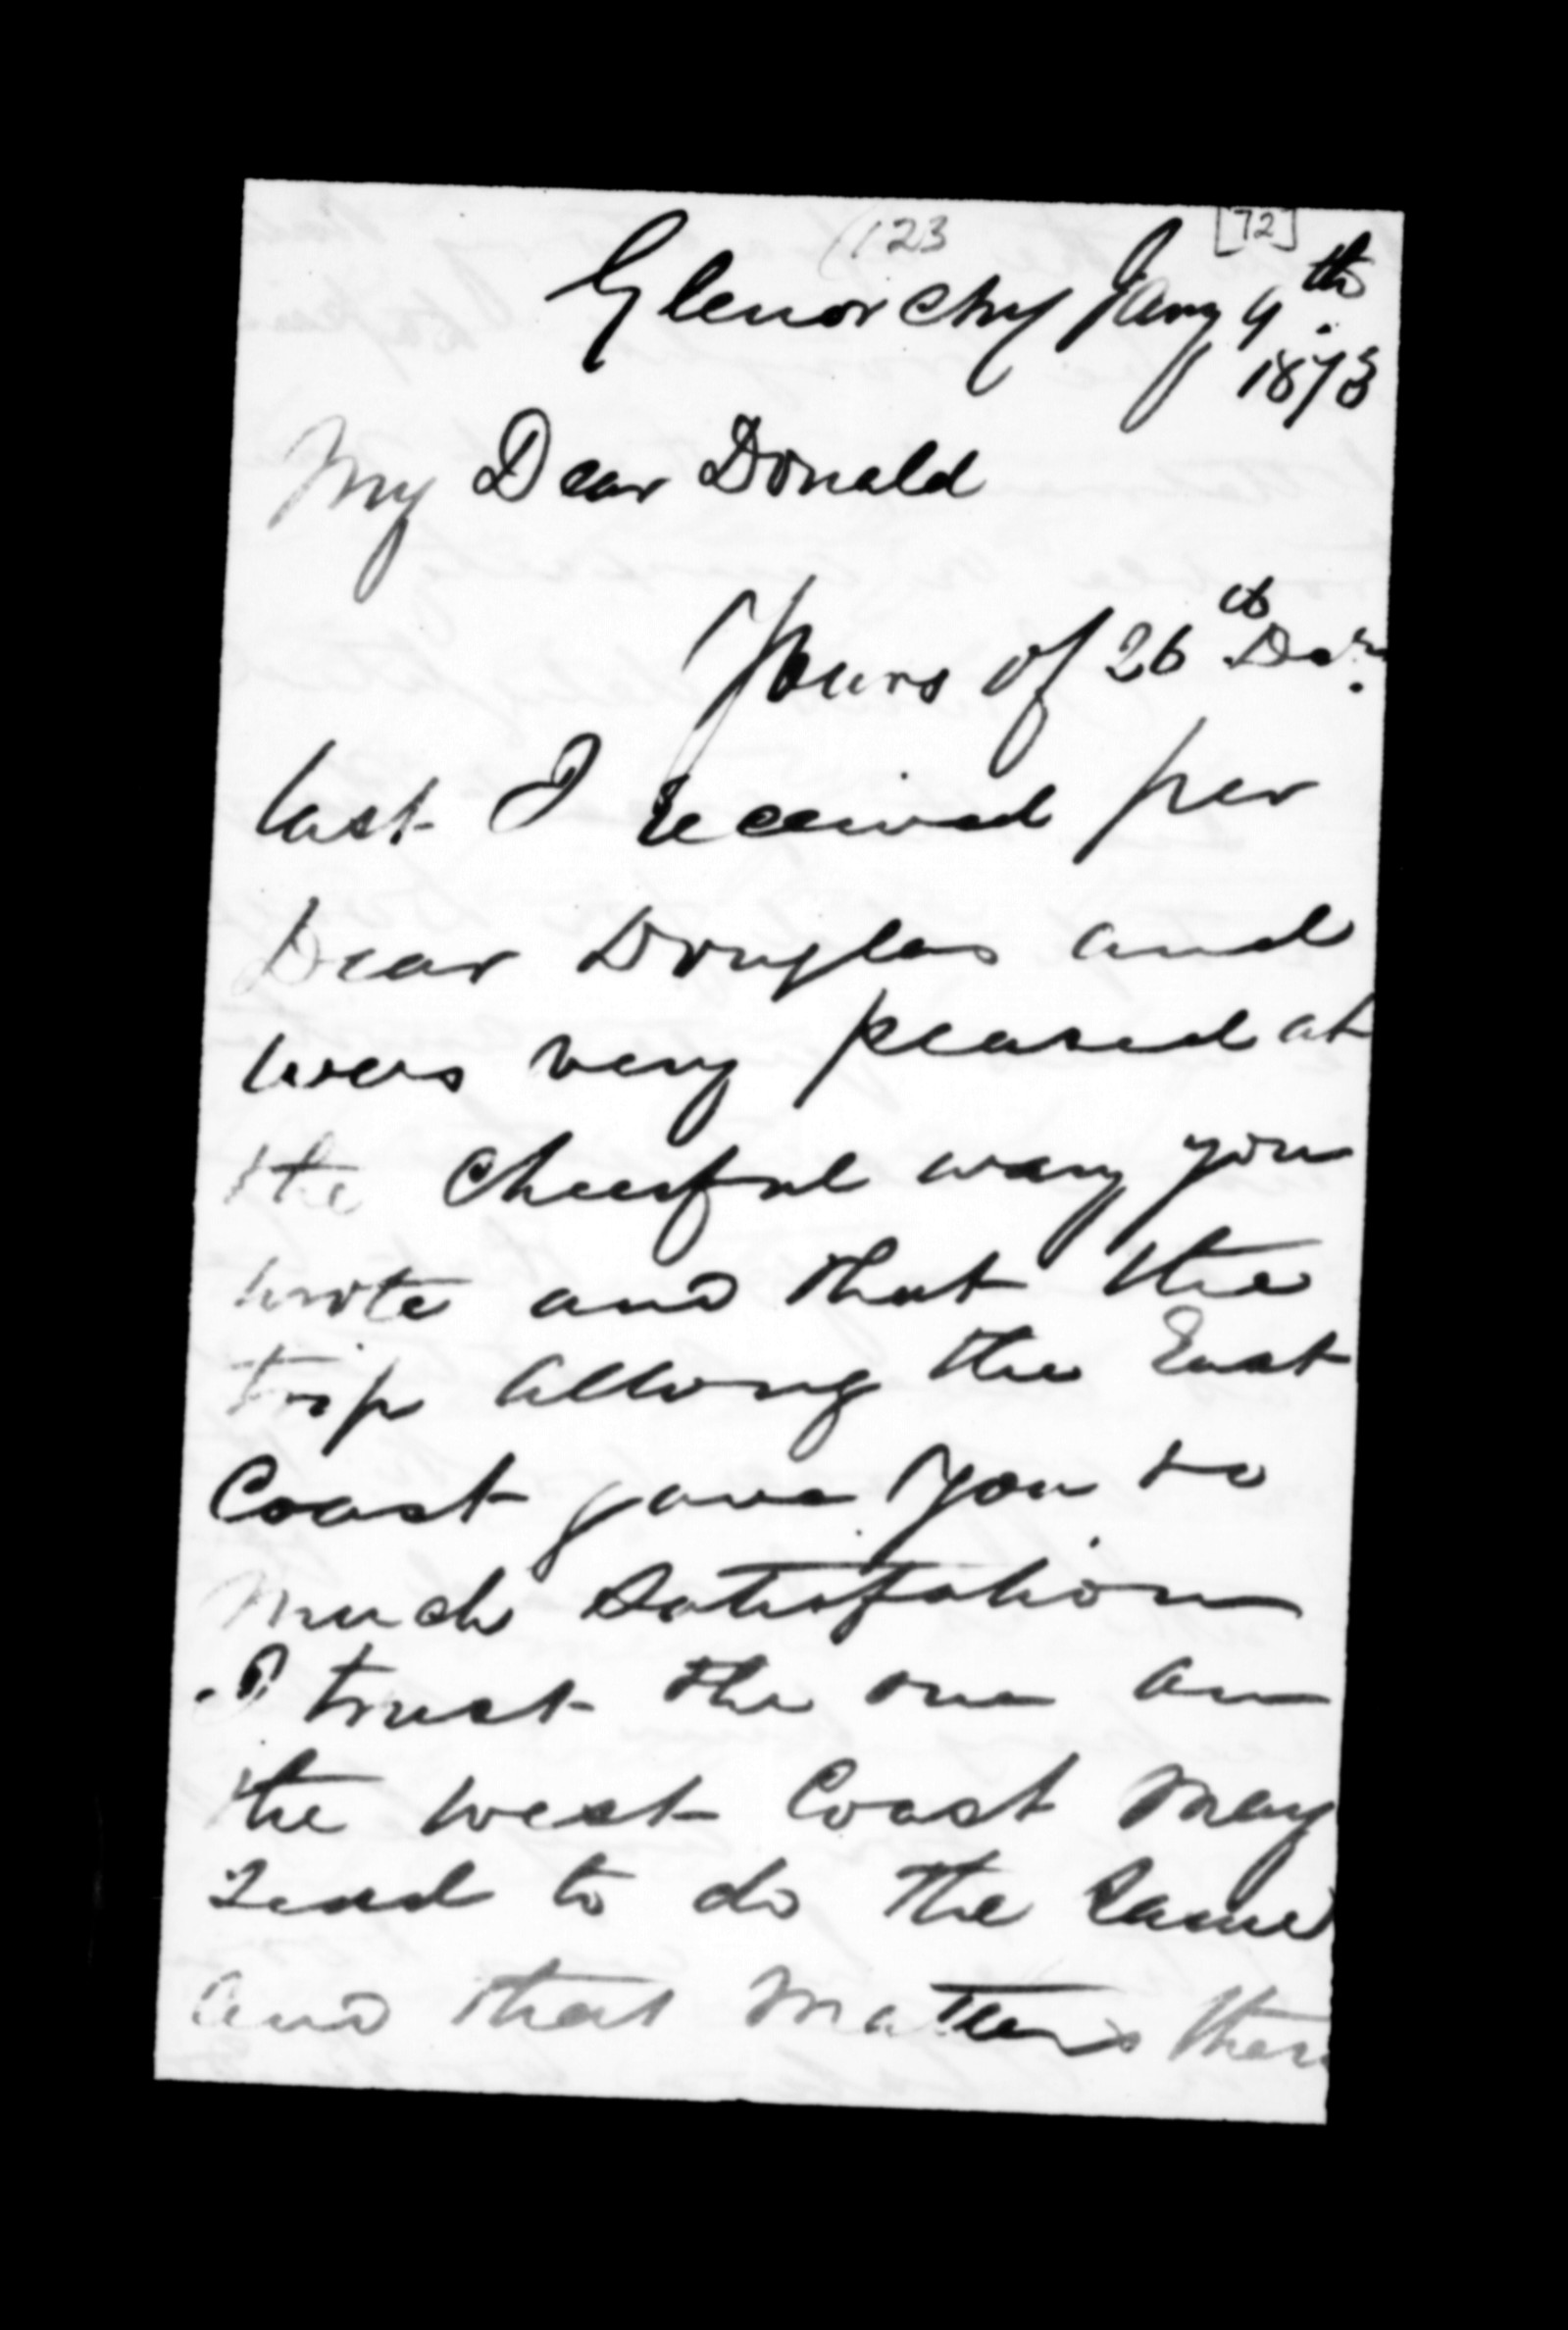 (123 [72]
Glenorchy Jany 9th.
1873
My Dear Donald
Yours of 26th Decr.
last I received per
Dear Douglas and
was very pleased at
the cheerful way you
wrote and that the
trip allong the East
Coast gave you so
much Satisfation
I trust the one on
the west Coast may
Tend to do the same
and that matters there